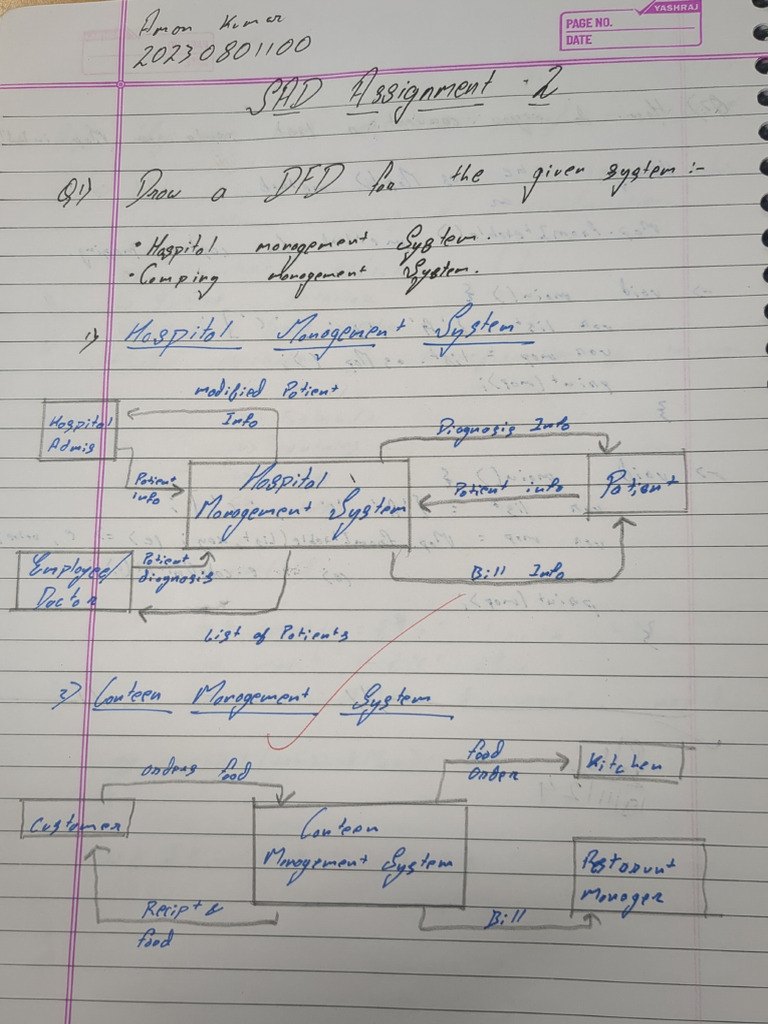 Aman Kumar
20230801100
YASHRAJ
PAGE NO.
DATE
SAD Assignment - 2
Q.1) Draw a DFD for the given system :-
• Hospital management System.
• Camping management System.
1) Hospital Management System
modified Patient
Info
Hospital
Admis
Patient
info
Hospital
Management System
Diagnosis Info
Patient info
Patient
Bill Info
Employee/
Doctor
Patient
diagnosis
List of Patients
2) Canteen Management System
orders food
food
order
Kitchen
Customer
Canteen
Management System
Restaurunt
Manager
Recipt &
food
Bill